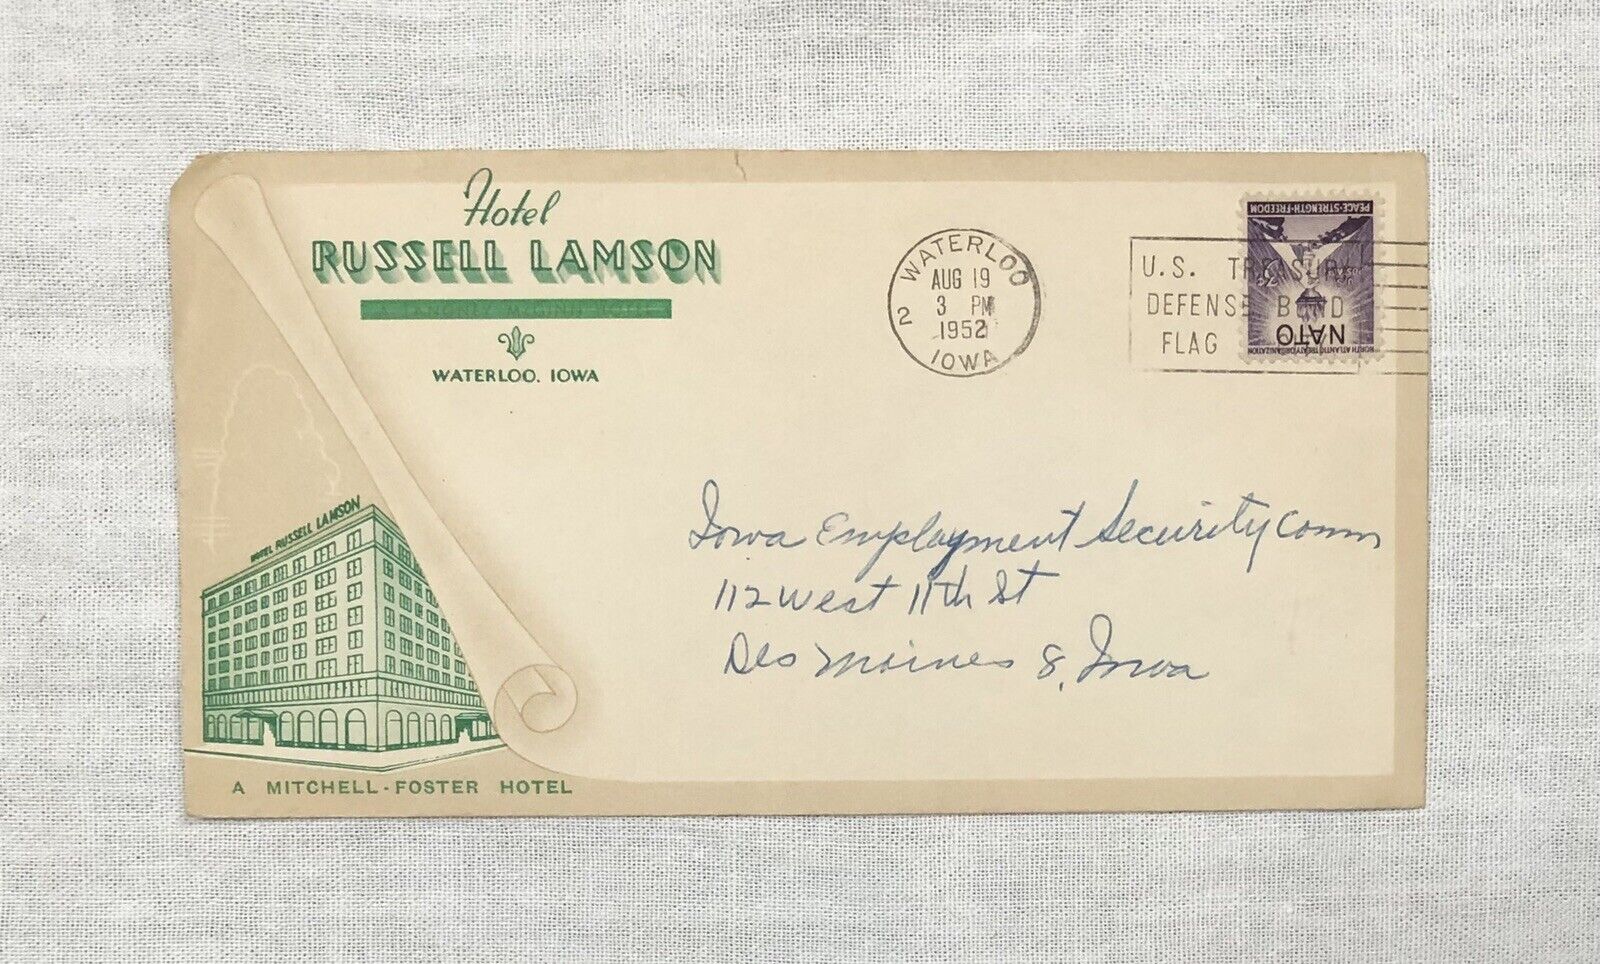 Hotel
RUSSELL LAMSON
WATERLOO, IOWA
HOTEL RUSSELL LAMSON
A MITCHELL-FOSTER HOTEL
WATERLOO
AUG 19
3 PM
1952
2
IOWA
U.S. TREASURY
DEFENSE BOND
FLAG
PEACE-STRENGTH-FREEDOM
NATO
NORTH ATLANTIC TREATY ORGANIZATION
Iowa Employment Security Comm
112 West 11th St
Des Moines 8, Iowa